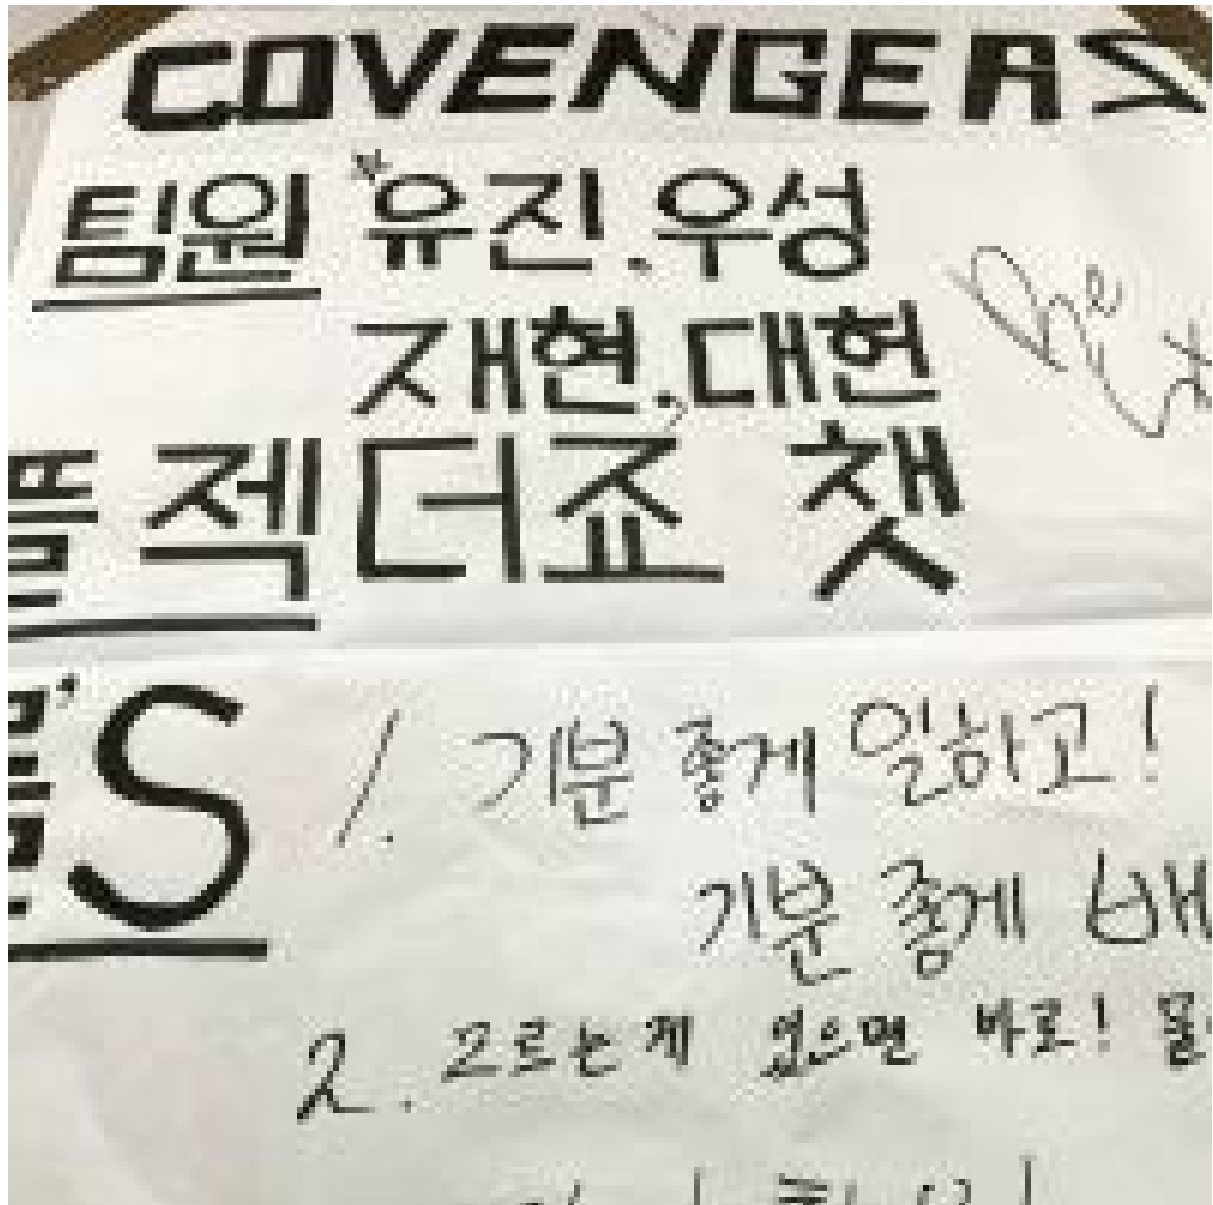 COVENGERS
팀원 *유진.우성
재현.대헌
젝 더죠 챗
'S 1. 기분 좋게 일하고!
기분 좋게
2. 모르는게 있으면 바로!